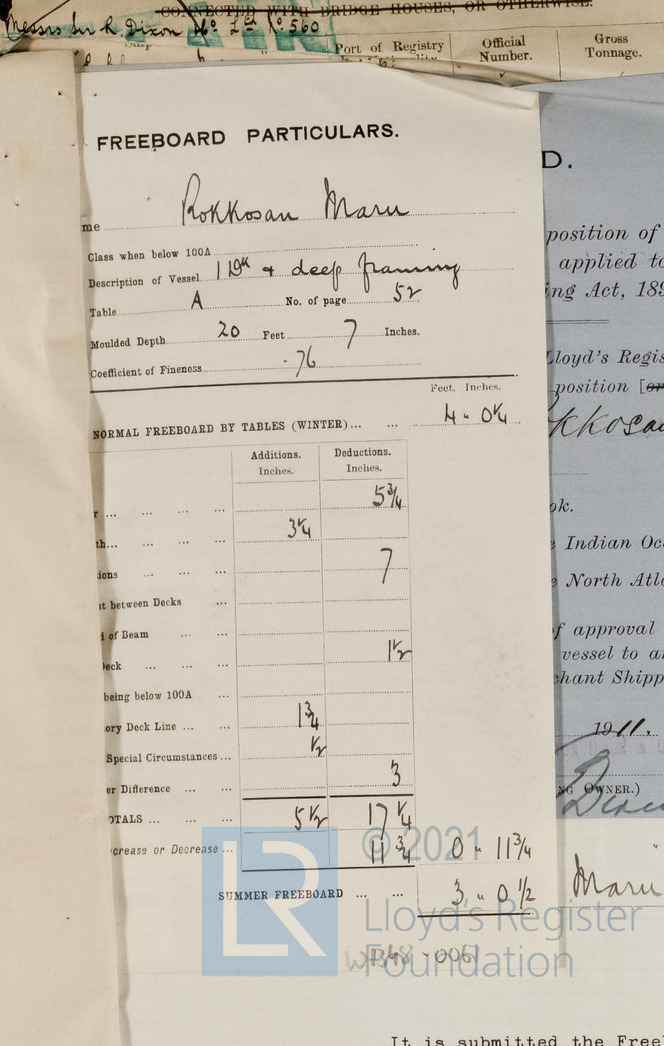 CONNECTED WITH BRIDGE HOUSES, OR OTHERWISE.
Messrs Sir R. Dixon No 2nd No 560
Port of Registry
Official Number.
Gross Tonnage.
FREEBOARD PARTICULARS.
me Rokkosan Maru
Class when below 100A
Description of Vessel 1 Dk & deep framing
Table A No. of page 52
Moulded Depth 20 Feet 7 Inches.
Coefficient of Fineness .76
Feet. Inches.
NORMAL FREEBOARD BY TABLES (WINTER)... ... 4 " 0 1/4
Additions. Inches. Deductions. Inches.
r ... ... ... ... 5 3/4
th... ... ... ... 3 1/4
ions ... ... ... 7
t between Decks ...
of Beam ... ...
eck ... ... ... 1 1/2
being below 100A ...
ory Deck Line ... ... 1 3/4
Special Circumstances ... 1/2
er Difference ... ... 3
OTALS ... ... ... 5 1/2 17 1/4
crease or Decrease ... 11 3/4 0 " 11 3/4
SUMMER FREEBOARD ... ... 3 " 0 1/2
D.
position of
applied to
ing Act, 189
Lloyd's Regis
position [or
kkosa
ok.
Indian Oc
North Atl
of approval
vessel to a
chant Shipp
1911.
NG OWNER.)
Maru
© 2021
LR
Lloyd's Register
Foundation
W1348-0061
It is submitted the Free